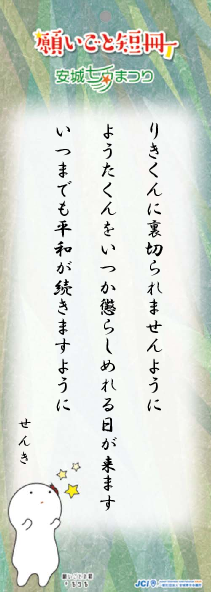 願いごと短冊
安城七夕まつり
りきくんに裏切られませんように
ようたくんをいつか懲らしめれる日が来ます
ように
いつまでも平和が続きますように
せんき
JCI